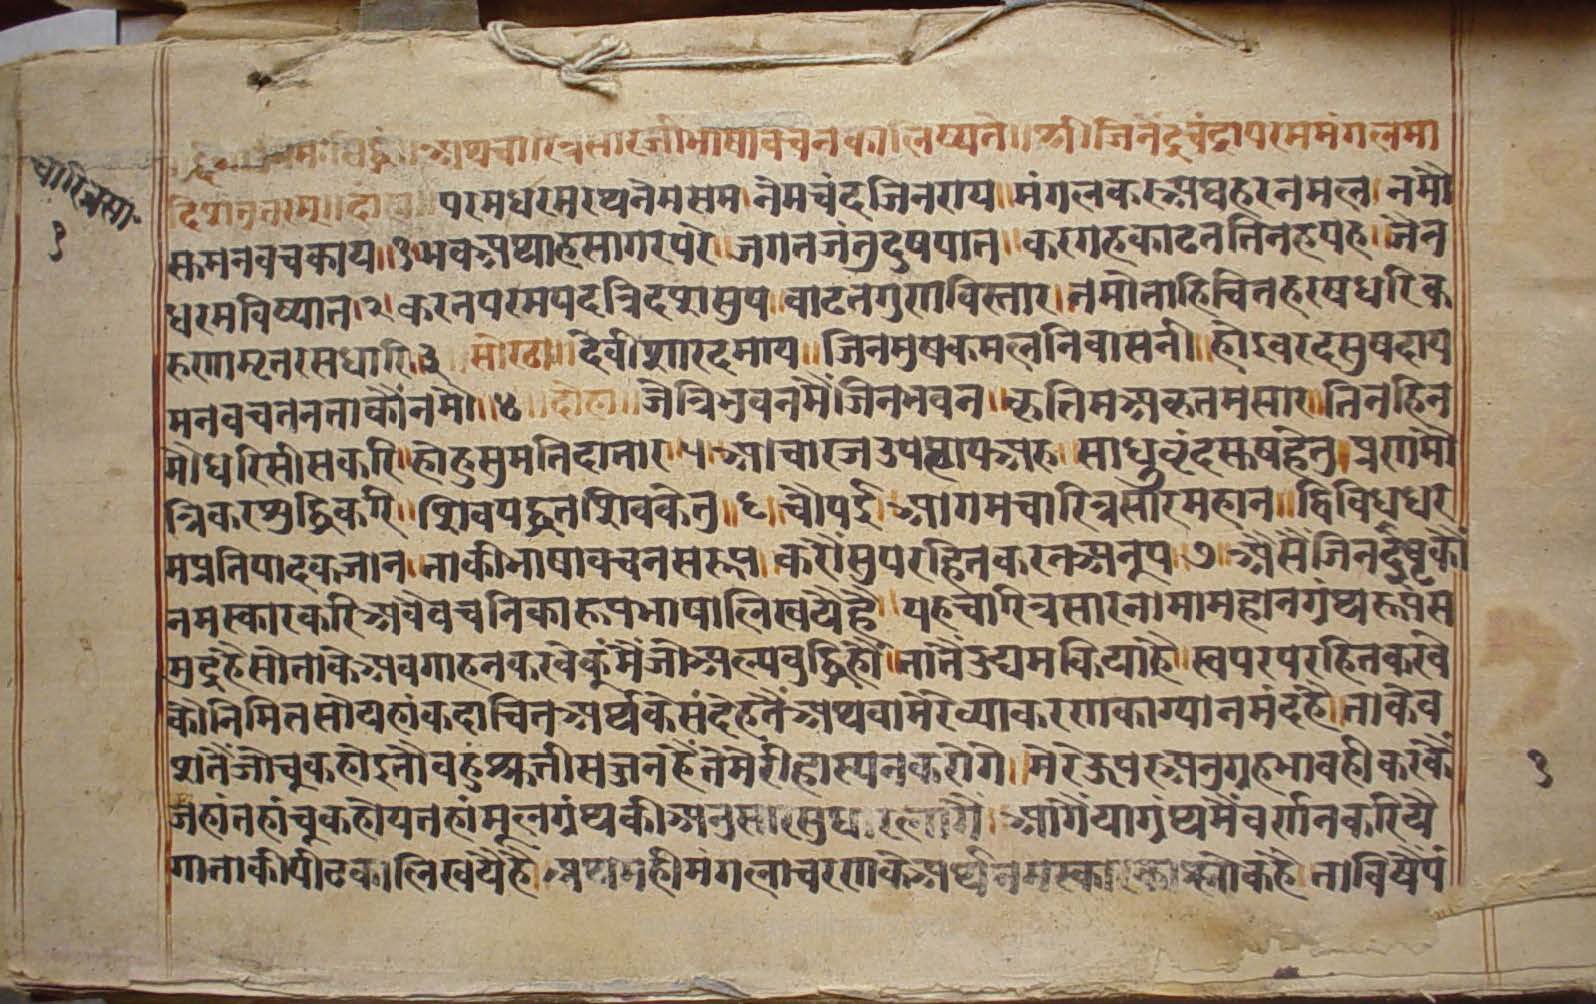 अथ चारित्रसारजी भाषा वचनका लिख्यते ॥ श्री जिनेंद्रचंद्रा परममंगलमा
परमधरमरथनेमसम नेमचंद जिनराय ॥ मंगलकर अघहरनमल नमौ
चारित्रसा॰
१
सुमनवचकाय ॥१॥ भवअथाहसागरपरे जगतजंतुदुषपात ॥ करगहकाढततिनहयह जैन
धरमविष्यात २ करतपरमपदत्रिदशसुप वाढतगुणविस्तार नमौताहिचितहरषधरिक
रुणामृतरसधारि ३ सोरठा ॥ देवीशारदमाय ॥ जिनमुषकमलनिवासनी ॥ होऽवरदसुषदाय
मनवचतनताकौंनमौ ॥४॥ दोहा ॥ जैत्रिभुवनमैंजिनभवन कृतिमअकृतमसार तिनहिन
मौंधरिसीसकरि होहुसुमतिदातार ५ आचारजउपध्यायअरु साधुवृंदसुषहेतु प्रणमौं
त्रिकरशुद्धिकरि शिवपदद्धुतशिवकेतु ॥६॥ चौपई आगमचारित्रसारमहान ॥ द्विविधधर
मप्रतिपादकजान ताकीभाषावचनसरूप करौंसुपरहितकरनअनूप ७ असैंजिनदेवकौं
नमस्कारकरिअववचनिकारूपभाषालिखयैहै यहचारित्रसारनामामहानग्रंथरूपस
मुद्रहैसोताकेअवगाहनकरवेकुंमैंजोअल्पबुद्धिहौं तातैंउद्यमकियाहै स्वपरपरहितकरवै
कौनिमितसोयहांकदाचितअर्थकेसंदेहतैंअथवामेरेव्याकरणकाग्यानमंदहै ताकैव
शतैंजौचुकहोऽतौवहुश्रुतीसज्जनहैंतेमेरीहास्यनकरोगे मेरेऊपरअनुग्रहभावहीकरकैं
जहांतहांचूकहोयतहांमूलग्रंथकीअनुसारसुधारलोगे आगैंयाग्रंथमैंवर्णनकरिये
गाताकीपीठकालिखयैहै प्रथमहीमंगलाचरणकेअर्थनमस्का श्लोकहै ताविषैपं
१